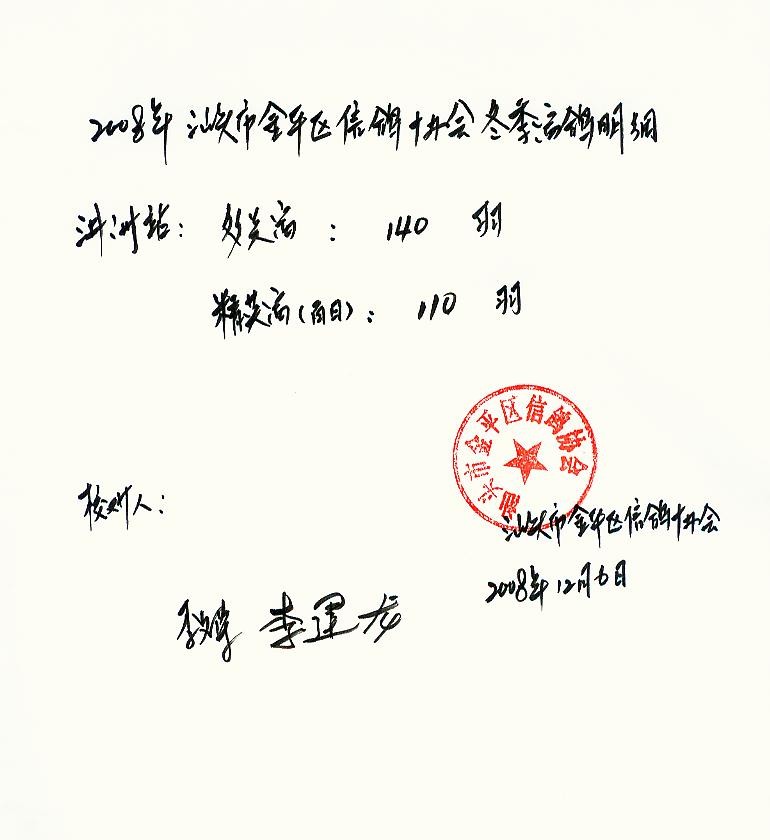 2008年汕头市金平区信鸽协会冬季高鸽明细
洪洲站: 多关高: 140 羽
精英高(百日): 110 羽
汕头市金平区信鸽协会
核对人:
汕头市金平区信鸽协会
2008年12月6日
李運龙